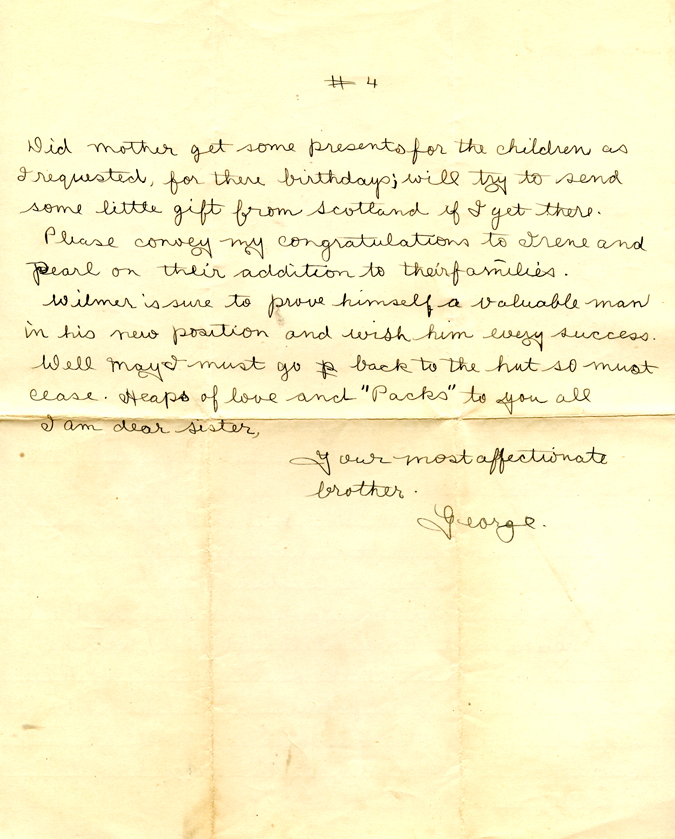 # 4
Did mother get some presents for the children as
I requested, for there birthdays; will try to send
some little gift from Scotland if I get there.
Please convey my congratulations to Irene and
pearl on their addition to their families.
Wilmer is sure to prove himself a valuable man
in his new position and wish him every success.
Well May I must go back to the hut so must
cease. Heaps of love and "Packs" to you all
I am dear sister,
Your most affectionate
brother.
George.